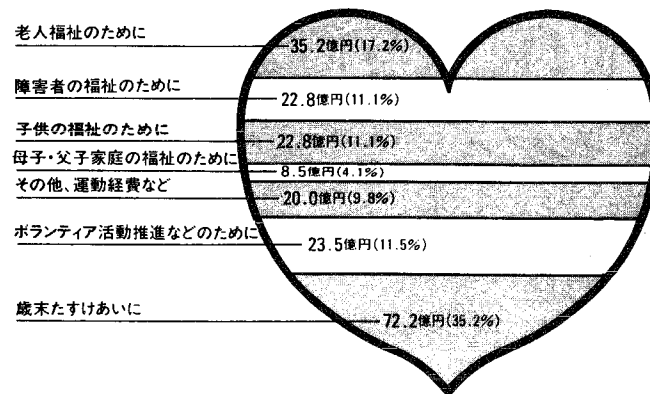 老人福祉のために
35.2億円(17.2%)
障害者の福祉のために
22.8億円(11.1%)
子供の福祉のために
22.8億円(11.1%)
母子・父子家庭の福祉のために
8.5億円(4.1%)
その他、運動経費など
20.0億円(9.8%)
ボランティア活動推進などのために
23.5億円(11.5%)
歳末たすけあいに
72.2億円(35.2%)